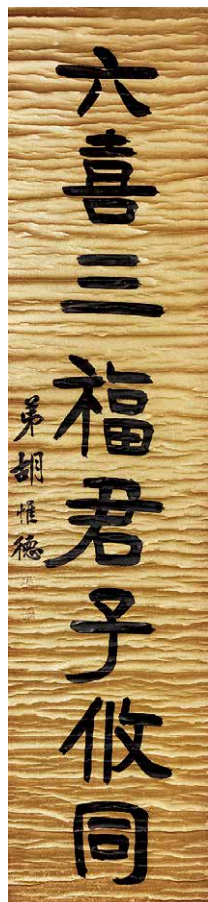 六喜三福君子攸同
弟胡惟德